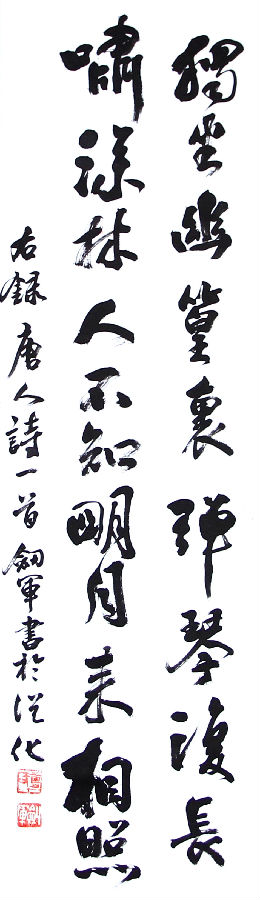 獨坐幽篁裏彈琴復長
嘯深林人不知明月来相照
右録唐人詩一首劍軍書於從化